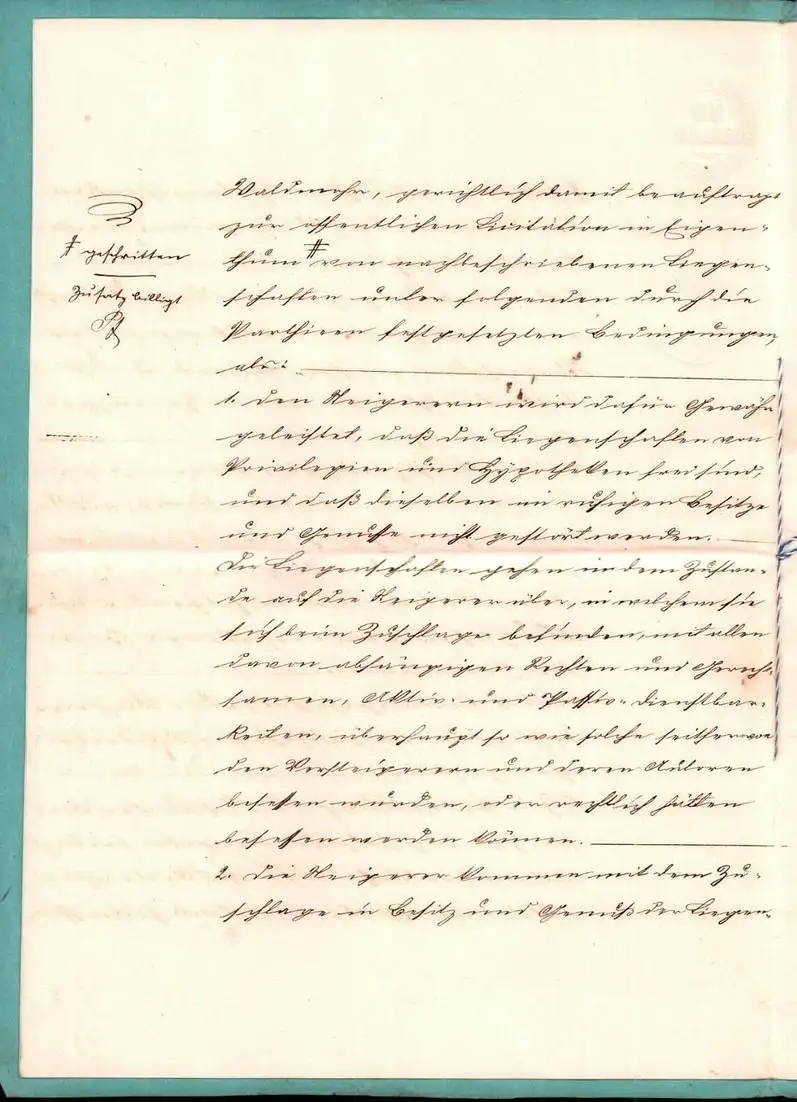 Waldmohr, gerichtlich damit beauftragt
zur öffentlichen Licitation in Eigen-
thum # von nachbeschriebenen Liegen-
schaften unter folgenden durch die
Partheien festgesetzten Bedingungen,
als:
# geschritten
Zusatz billigt
1. Den Steigerern wird dafür Gewähr
geleistet, daß die Liegenschaften von
Privilegien und Hypotheken frei sind,
und daß dieselben im ruhigen Besitze
und Genusse nicht gestört werden.
Die Liegenschaften gehen in dem Zustan-
de auf die Steigerer über, in welchem sie
sich beim Zuschlage befinden, mit allen
davon abhängigen Rechten und Gerecht-
samen, Aktiv- und Passiv-Dienstbar-
keiten, überhaupt so wie solche seither von
den Versteigerern und deren Autoren
besessen wurden, oder rechtlich hätten
besessen werden können.
2. Die Steigerer kommen mit dem Zu-
schlage in Besitz und Genuß der Liegen-